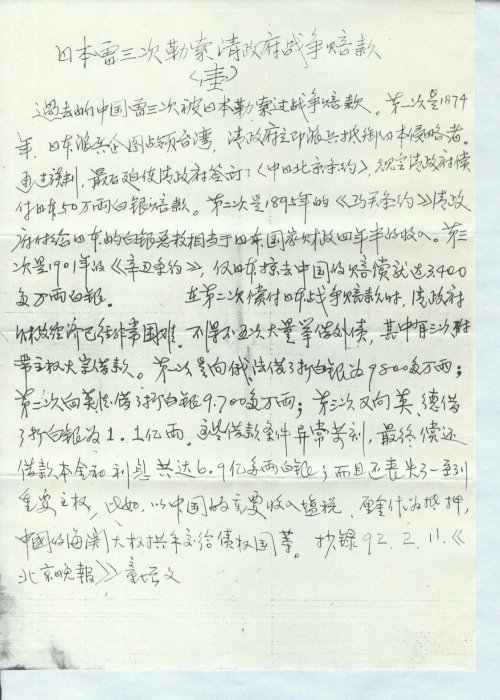 日本曾三次勒索清政府战争赔款
过去的中国曾三次被日本勒索过战争赔款。第一次是1874
年，日本派兵企图占领台湾，清政府立即派兵抵御日本侵略者。
通过谈判，最后迫使清政府签订了《中日北京条约》，规定清政府偿
付日本50万两白银赔款。第二次是1895年的《马关条约》清政
府付给日本的白银总数相当于日本国家财政四年半的收入。第三
次是1901年的《辛丑条约》，仅日本掠去中国的赔偿就达3400
多万两白银。 在第二次偿付日本战争赔款时，清政府
财政经济已往非常困难，不得不五次大量举借外债，其中有三次附
带主权大宗借款。第一次是向俄、法借了折白银为9800多万两；
第二次向英德借了折白银9.700多万两；第三次又向英、德借
了折白银为1.1亿两。这些借款条件异常苛刻，最终偿还
借款本金和利息共达6.9亿多两白银；而且还丧失了一系列
重要主权，比如，以中国的主要收入盐税、厘金作为抵押，
中國的海関大权拱手交给债权国等。抄録92.2.11.《
北京晚報》童增文